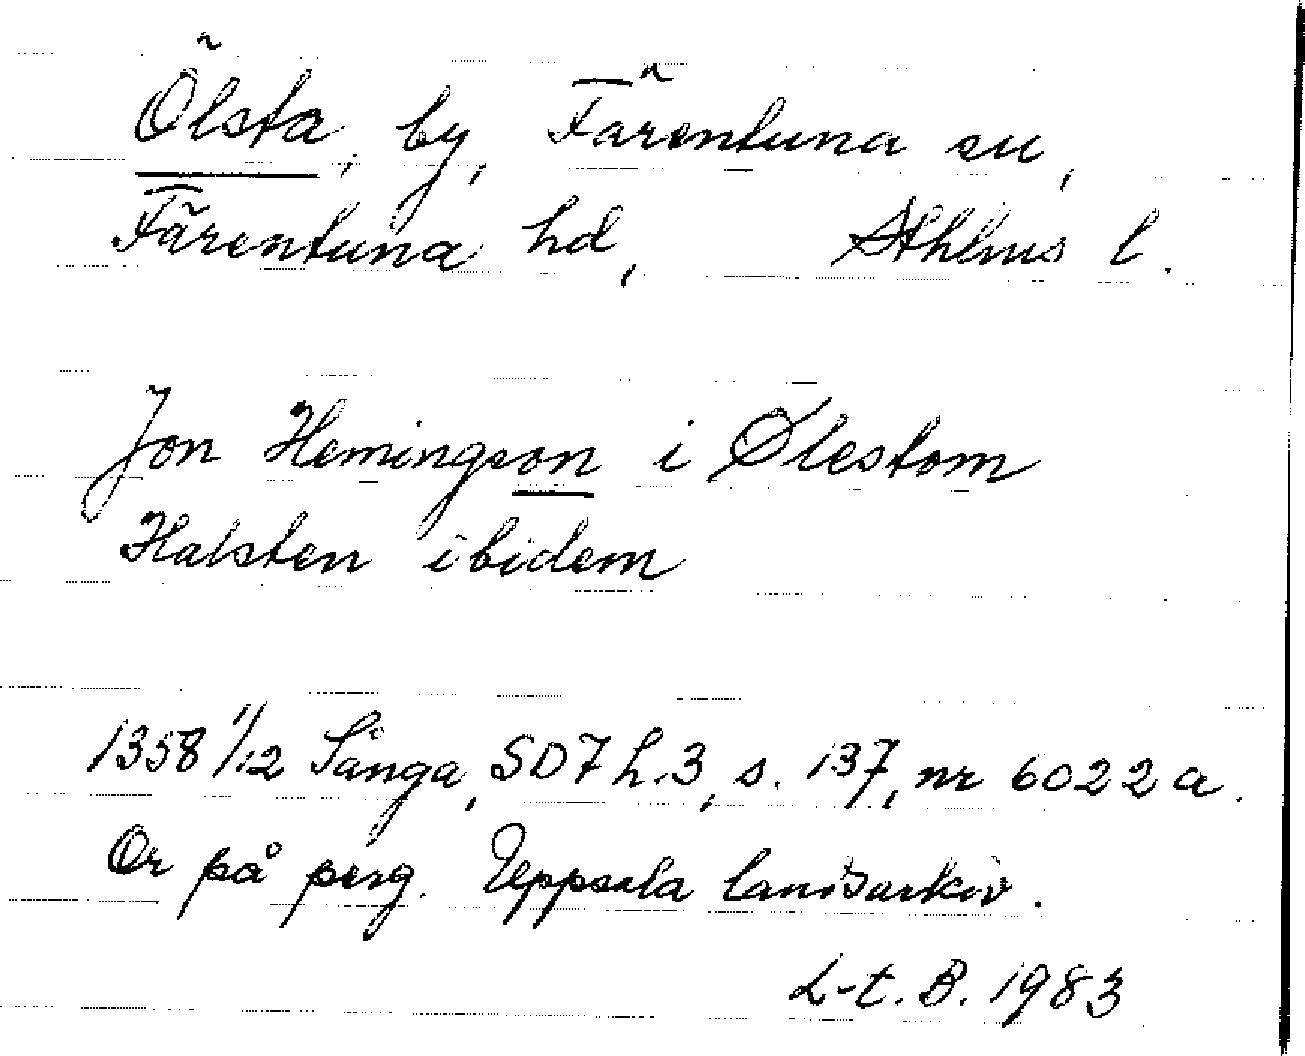 Ölsta, by, Färentuna sn,
Färentuna hd, Sthlms l.
Jon Hemingson i Ølestom
Halsten ibidem
1358 1/12 Sånga, SD7 h.3, s. 137, nr 6022 a.
Or på perg. Uppsala landsarkiv.
L-t. B. 1983